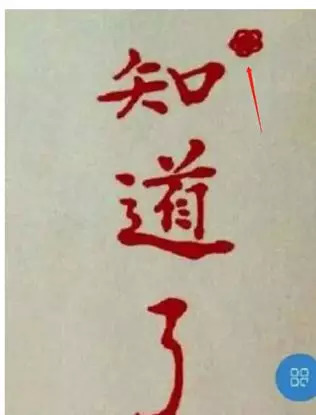 知
道
了